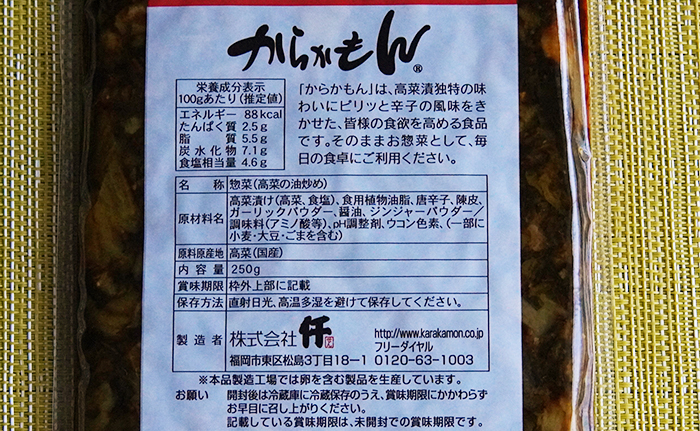 からかもん®
栄養成分表示
100gあたり(推定値)
エネルギー 88kcal
たんぱく質 2.5g
脂質 5.5g
炭水化物 7.1g
食塩相当量 4.6g
「からかもん」は、高菜漬独特の味
わいにピリッと辛子の風味をき
かせた、皆様の食欲を高める食品
です。そのままお惣菜として、毎
日の食卓にご利用ください。
名称 惣菜(高菜の油炒め)
原材料名 高菜漬け(高菜、食塩)、食用植物油脂、唐辛子、陳皮、
ガーリックパウダー、醤油、ジンジャーパウダー/
調味料(アミノ酸等)、pH調整剤、ウコン色素、(一部に
小麦・大豆・ごまを含む)
原料原産地 高菜(国産)
内容量 250g
賞味期限 枠外上部に記載
保存方法 直射日光、高温多湿を避けて保存してください。
製造者 株式会社
http://www.karakamon.co.jp
フリーダイヤル
福岡市東区松島3丁目18−1 0120-63-1003
※本品製造工場では卵を含む製品を生産しています。
お願い 開封後は冷蔵庫に冷蔵保存のうえ、賞味期限にかかわらず
お早目に召し上がりください。
記載している賞味期限は、未開封での賞味期限です。